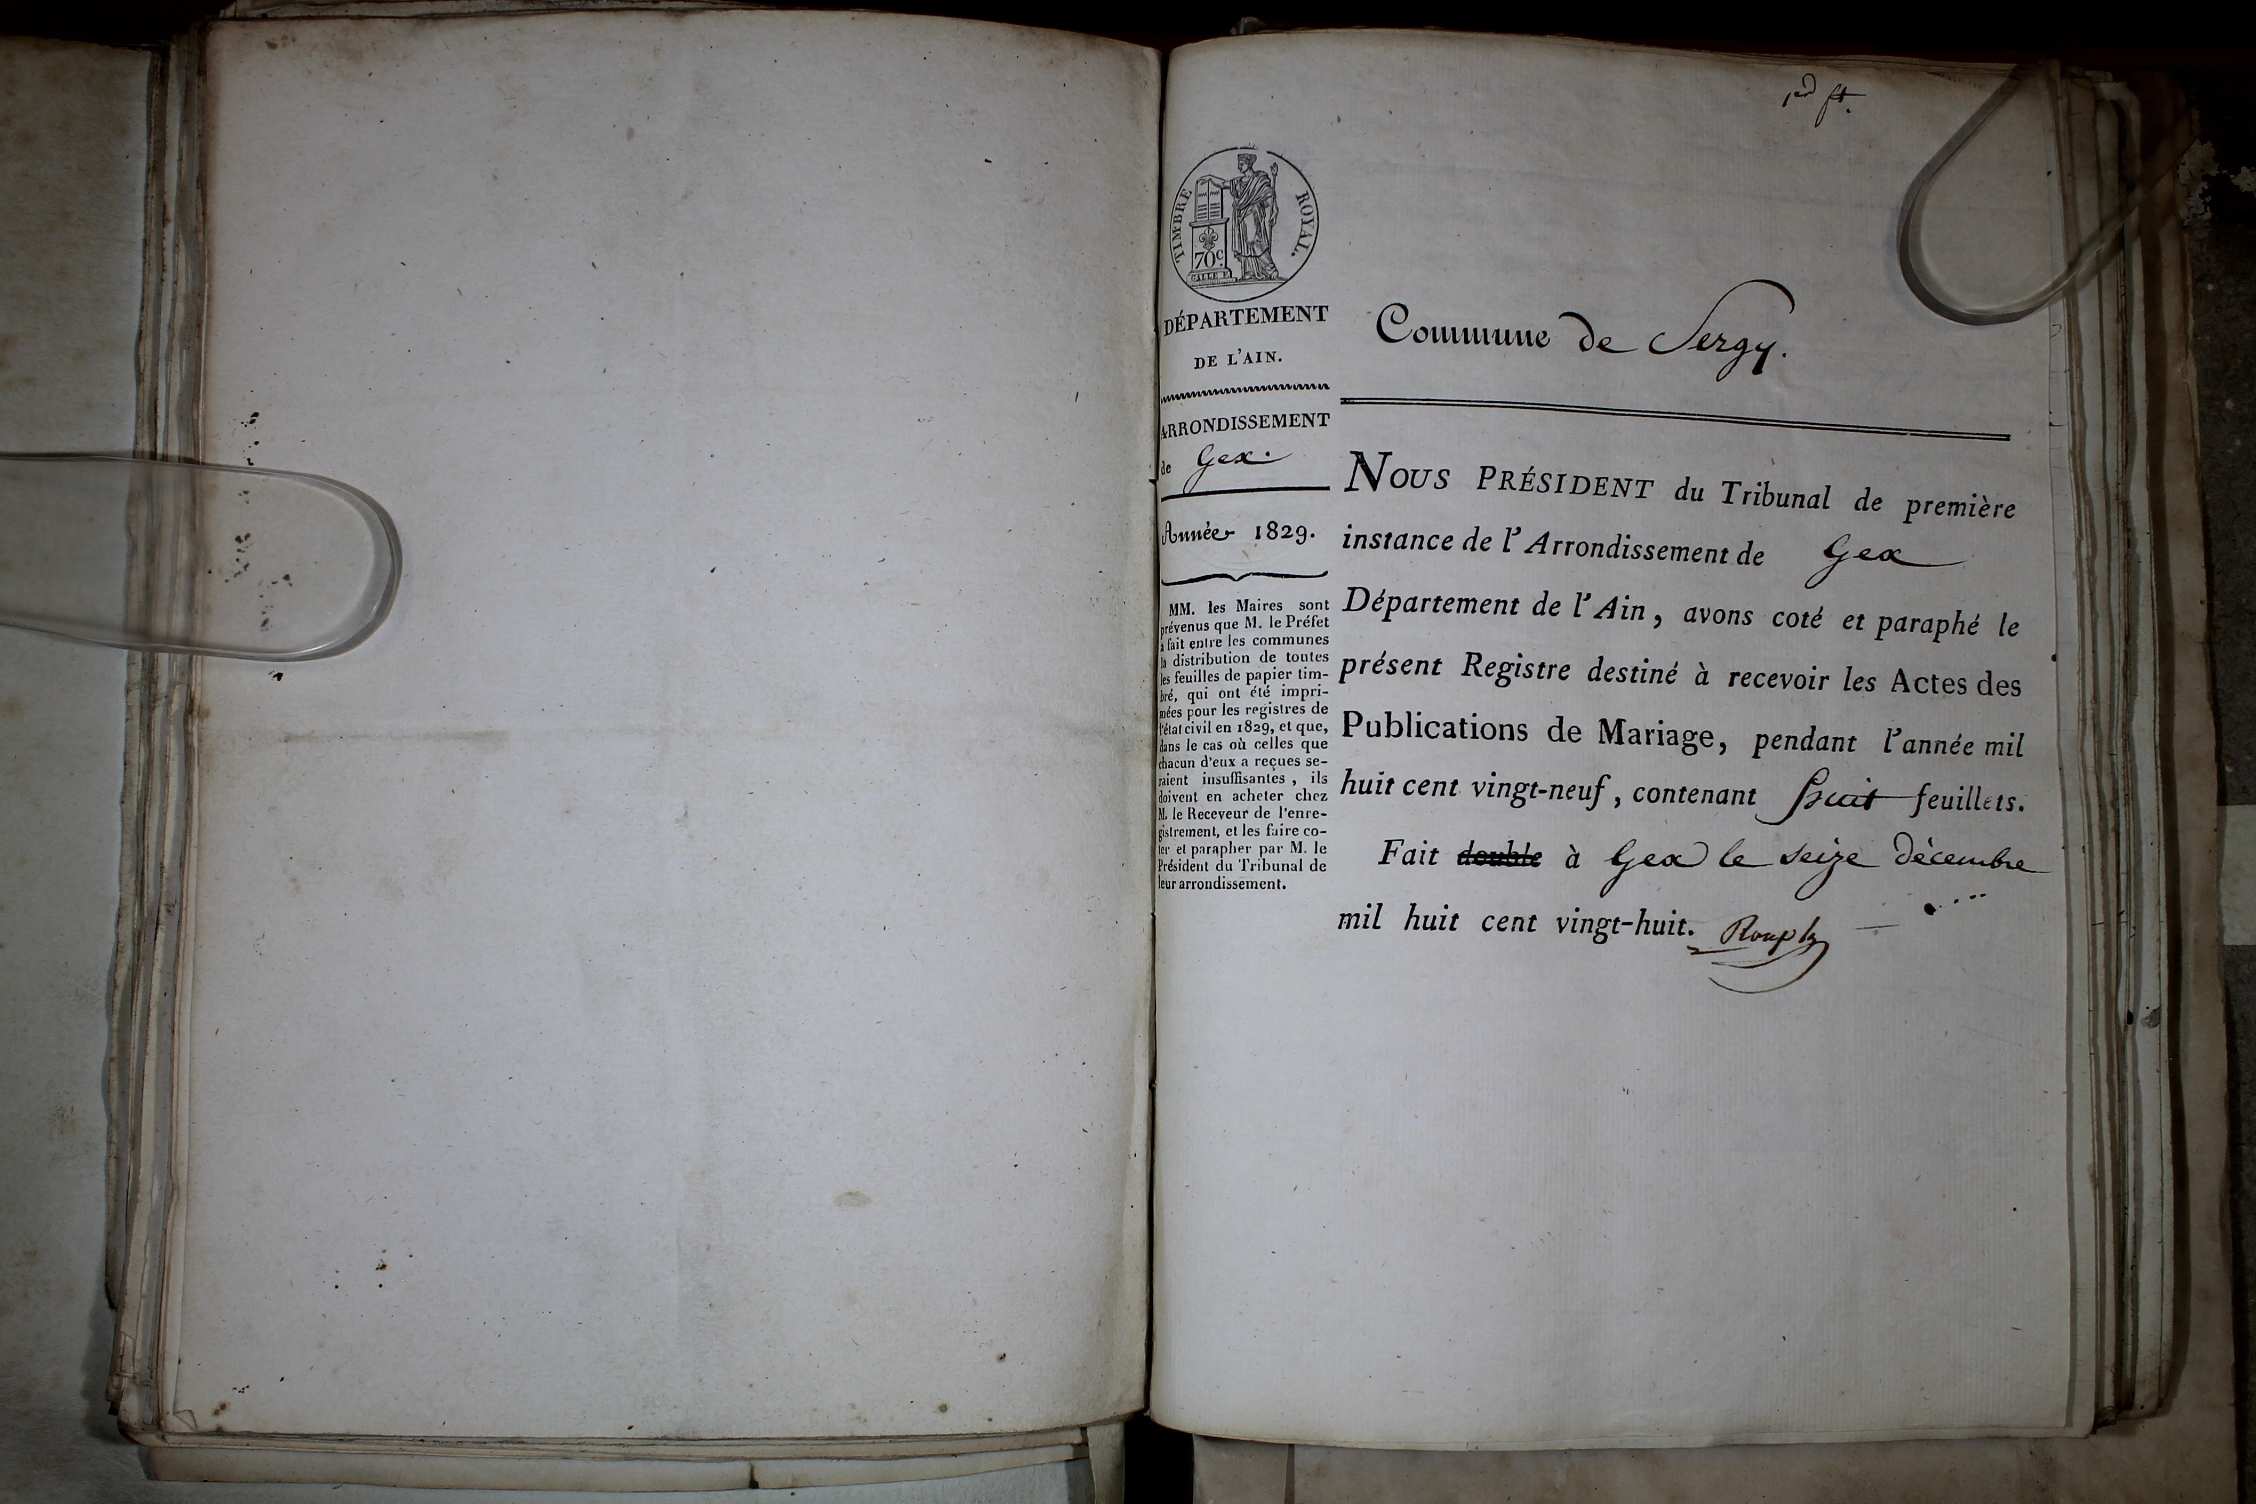 1er ft.
TIMBRE ROYAL.
70c.
DÉPARTEMENT
DE L'AIN.
ARRONDISSEMENT
de Gex.
Année 1829.
MM. les Maires sont
prévenus que M. le Préfet
a fait entre les communes
la distribution de toutes
les feuilles de papier tim-
bré, qui ont été impri-
mées pour les registres de
l'état civil en 1829, et que,
dans le cas où celles que
chacun d'eux a reçues se-
raient insuffisantes, ils
doivent en acheter chez
M. le Receveur de l'enre-
gistrement, et les faire co-
ter et parapher par M. le
Président du Tribunal de
leur arrondissement.
Commune de Sergy.
NOUS PRÉSIDENT du Tribunal de première
instance de l'Arrondissement de Gex
Département de l'Ain, avons coté et paraphé le
présent Registre destiné à recevoir les Actes des
Publications de Mariage, pendant l'année mil
huit cent vingt-neuf, contenant huit feuillets.
Fait double à Gex le seize décembre
mil huit cent vingt-huit.